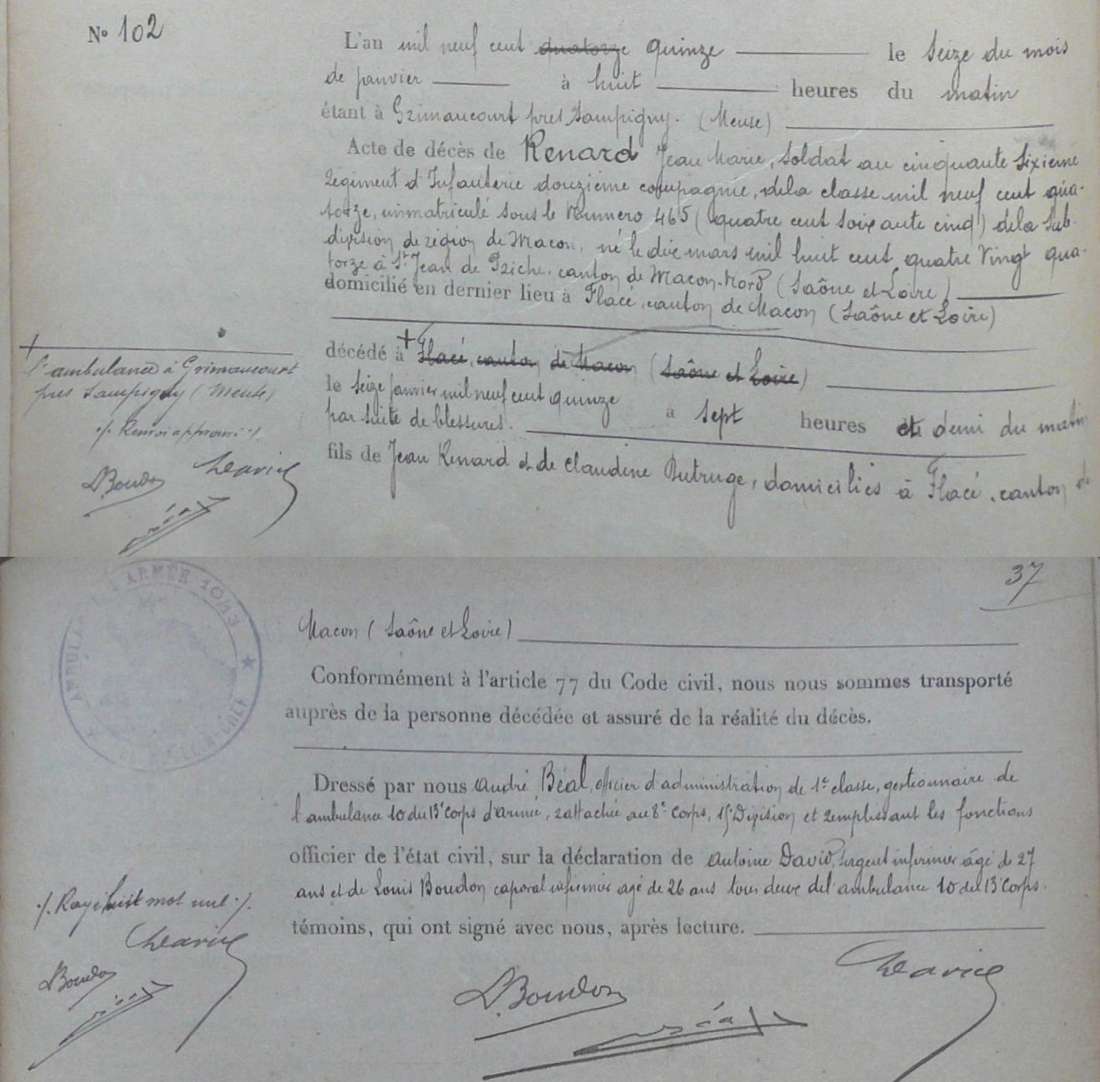 N° 102
L'an mil neuf cent quatorze quinze le seize du mois
de janvier à huit heures du matin
étant à Grimaucourt près Sampigny. (Meuse)
Acte de décès de Renard Jean Marie, soldat au cinquante sixième
régiment d'Infanterie douzième compagnie, de la classe mil neuf cent qua-
torze, immatriculé sous le Numero 465 (quatre cent soixante cinq) de la sub-
division de région de Macon, né le dix mars mil huit cent quatre vingt qua-
torze à St Jean de Priche, canton de Macon-Nord (Saône et Loire)
domicilié en dernier lieu à Flacé, canton de Macon (Saône et Loire)
décédé à + Flacé, canton de Macon (Saône et Loire)
le seize janvier mil neuf cent quinze
à sept heures et demi du matin
par suite de blessures.
fils de Jean Renard et de Claudine Dutruge, domiciliés à Flacé, canton de
+
l'ambulance à Grimaucourt
près Sampigny (Meuse)
./. Renvoi approuvé ./.
L. Boudon David
Béal
37
AMBULANCE ARMÉE 10/13
Macon (Saône et Loire)
Conformément à l'article 77 du Code civil, nous nous sommes transporté
auprès de la personne décédée et assuré de la réalité du décès.
Dressé par nous André Béal, officier d'administration de 1e classe, gestionnaire de
l'ambulance 10 du 13e Corps d'Armée, rattachée au 8e Corps, 15e Division et remplissant les fonctions
officier de l'état civil, sur la déclaration de Antoine David, sergent infirmier âgé de 27
ans et de Louis Boudon caporal infirmier agé de 26 ans tous deux de l'ambulance 10 du 13e Corps.
témoins, qui ont signé avec nous, après lecture.
./. Rayé huit mot nul ./.
David
L. Boudon
Béal
L. Boudon
Béal
David